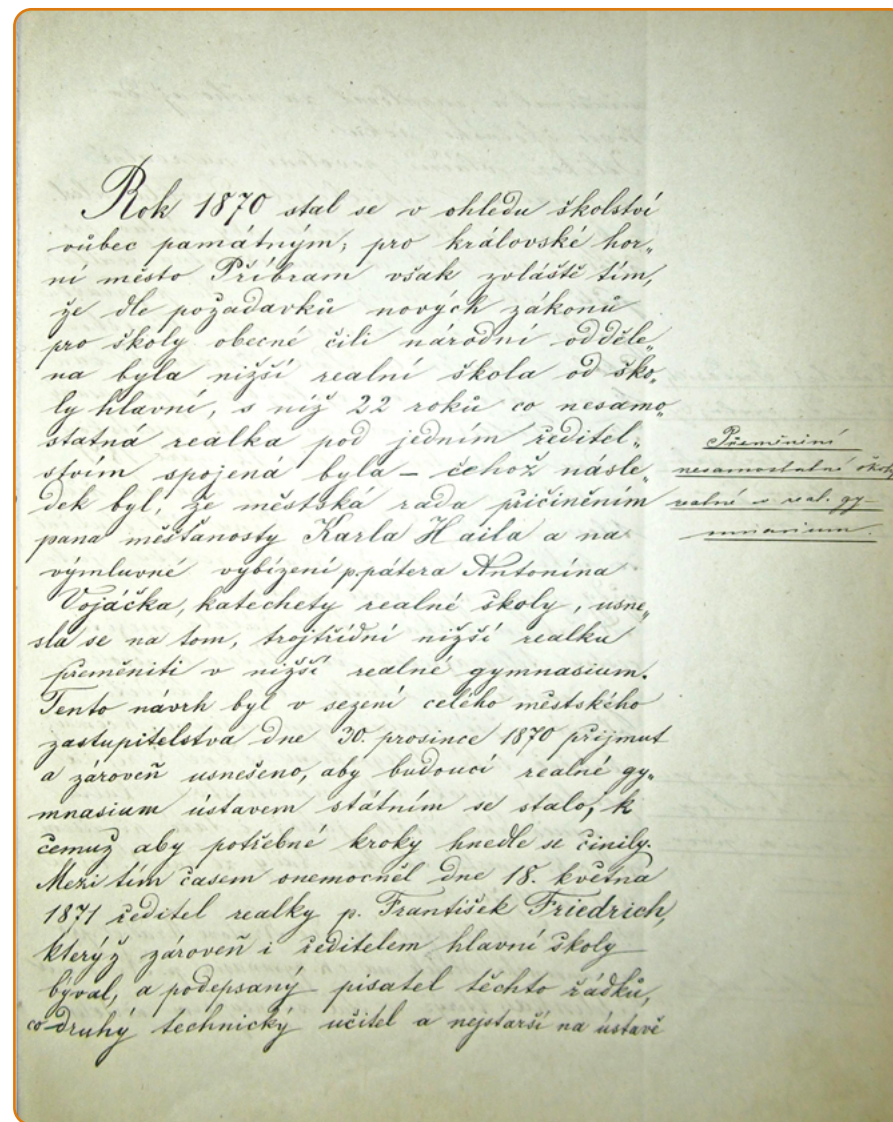 Rok 1870 stal se v ohledu školství
vůbec památným; pro královské hor„
ní město Příbram však zvláště tím,
že dle požadavků nových zákonů
pro školy obecné čili národní odděle„
na byla nižší realní škola od ško„
ly hlavní, s níž 22 roků co nesamo„
statná realka pod jedním ředitel„
stvím spojená byla – čehož násle„
dek byl, že městská rada přičiněním
pana měšťanosty Karla Haila a na
výmluvné vybízení p. pátera Antonína
Vojáčka, katechety realné školy, usne„
sla se na tom, trojtřídní nižší realku
přeměniti v nižší realné gymnasium.
Tento návrh byl v sezení celého městského
zastupitelstva dne 30. prosince 1870 přijmut
a zároveň usnešeno, aby budoucí realné gy„
mnasium ústavem státním se stalo, k
čemuž aby potřebné kroky hnedle se činily.
Mezi tím časem onemocněl dne 18. května
1871 ředitel realky p. František Friedrich,
kterýž zároveň i ředitelem hlavní školy
býval, a podepsaný pisatel těchto řádků,
co druhý technický učitel a nejstarší na ústavě
Přeměnění
nesamostatné školy
realné v real. gy-
mnasium.